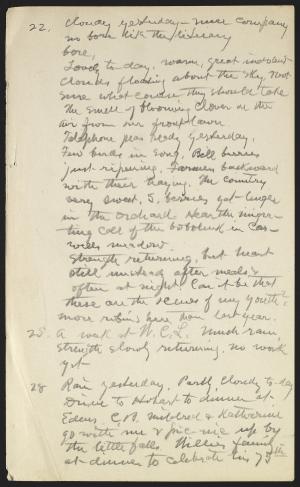 22. Cloudy yesterday - much company
no bore like the literary
bore,
Lovely to-day, warm, great indolent
clouds floating about the sky, not
sure what course they should take
the smell of blooming clover on the
air from our front lawn
Telephone peas ready yesterday,
Few birds in song, Bill berries
just ripening, Farmers backward
with their haying. The country
very sweet, S. berries yet linger
in the orchard Hear the migra-
ting call of the bobolink in Cas-
well's meadow.
Strength returning, but heart
still unsteady after meals &
often at night. Can it be that
these are the scenes of my youth?
more robins here than last year.
25. A week at W.C.L. Much rain,
Strength slowly returning, no work
yet
28 Rain yesterday, Partly cloudy to-day
Drive to Hobart to dinner at
Edens, C.B. Mildred & Katherine
go with me & pic-nic up by
the little falls. Willie's family
at dinner to celebrate his 75th